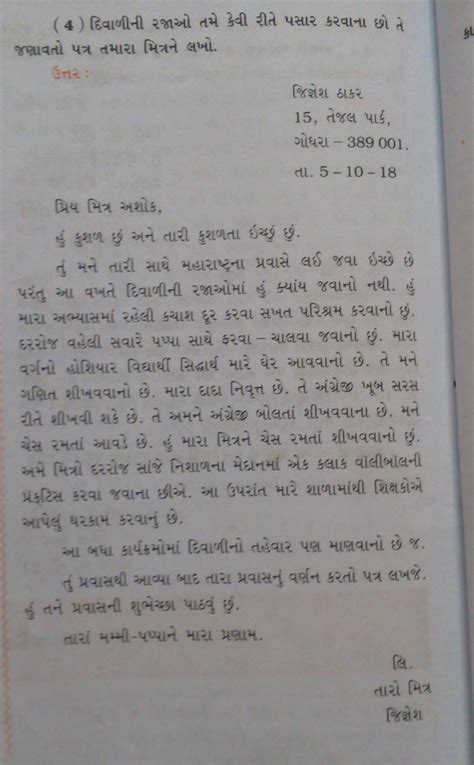 ( 4 ) દિવાળીની રજાઓ તમે કેવી રીતે પસાર કરવાના છો તે
જણાવતો પત્ર તમારા મિત્રને લખો.
ઉત્તર :
જિજ્ઞેશ ઠાકર
15, તેજલ પાર્ક,
ગોધરા – 389 001.
તા. 5 – 10 – 18
પ્રિય મિત્ર અશોક,
હું કુશળ છું અને તારી કુશળતા ઇચ્છું છું.
તું મને તારી સાથે મહારાષ્ટ્રના પ્રવાસે લઈ જવા ઇચ્છે છે
પરંતુ આ વખતે દિવાળીની રજાઓમાં હું ક્યાંય જવાનો નથી. હું
મારા અભ્યાસમાં રહેલી કચાશ દૂર કરવા સખત પરિશ્રમ કરવાનો છું.
દરરોજ વહેલી સવારે પપ્પા સાથે ફરવા – ચાલવા જવાનો છું. મારા
વર્ગનો હોશિયાર વિદ્યાર્થી સિદ્ધાર્થ મારે ઘેર આવવાનો છે. તે મને
ગણિત શીખવવાનો છે. મારા દાદા નિવૃત્ત છે. તે અંગ્રેજી ખૂબ સરસ
રીતે શીખવી શકે છે. તે અમને અંગ્રેજી બોલતાં શીખવવાના છે. મને
ચેસ રમતાં આવડે છે. હું મારા મિત્રને ચેસ રમતાં શીખવવાનો છું.
અમે મિત્રો દરરોજ સાંજે નિશાળના મેદાનમાં એક કલાક વૉલીબૉલની
પ્રૅક્ટિસ કરવા જવાના છીએ. આ ઉપરાંત મારે શાળામાંથી શિક્ષકોએ
આપેલું ઘરકામ કરવાનું છે.
આ બધા કાર્યક્રમોમાં દિવાળીનો તહેવાર પણ માણવાનો છે જ.
તું પ્રવાસથી આવ્યા બાદ તારા પ્રવાસનું વર્ણન કરતો પત્ર લખજે.
હું તને પ્રવાસની શુભેચ્છા પાઠવું છું.
તારાં મમ્મી-પપ્પાને મારા પ્રણામ.
લિ.
તારો મિત્ર
જિજ્ઞેશ